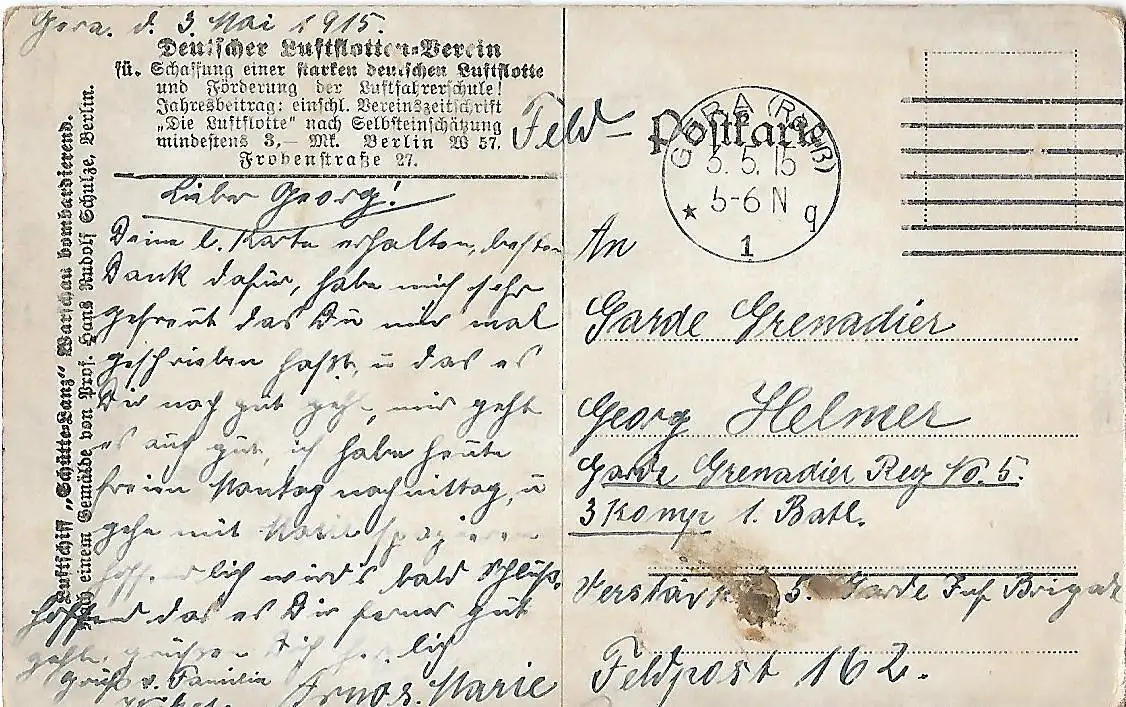 Gera. d. 3. Mai 1915.
Deutscher Luftflotten-Verein
fü. Schaffung einer starken deutschen Luftflotte
und Förderung der Luftfahrerschule!
Jahresbeitrag: einschl. Vereinszeitschrift
„Die Luftflotte" nach Selbsteinschätzung
mindestens 3,— Mk. Berlin W 57.
Frobenstraße 27.
Luftschiff „Schütte-Lanz" Warschau bombardierend.
Nach einem Gemälde von Prof. Hans Rudolf Schulze, Berlin.
Lieber Georg!
Deine l. Karte erhalten, besten
Dank dafür, habe mich sehr
gefreut das Du mir mal
geschrieben hast, u das es
Dir noch gut geht, mir geht
es auch gut, ich habe heute
freien Montag nachmittag, u
gehe mit Marie spazieren
hoffendlich wird's bald Schluß.
hoffend das es Dir ferner gut
geht, grüßen Dich herzlich
Gruß v. Familie
Arno u. Marie
Feld-
Postkarte
GERA (REUß)
3.5.15
5-6 N
* 1 g
An
Garde Grenadier
Georg Helmer
Garde Grenadier Reg No. 5.
3 Komp 1. Batl.
Verstärk 5. Garde Inf Brigade
Feldpost 162.